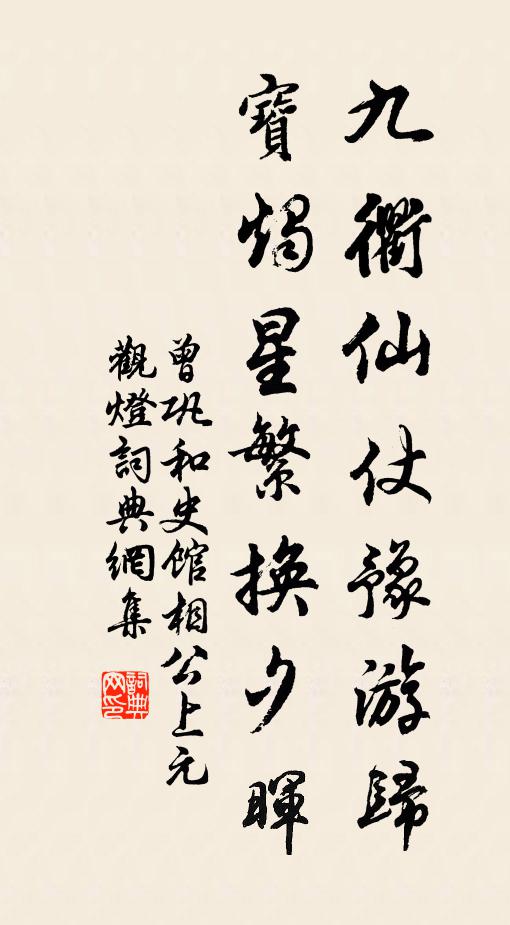 九衢仙仗豫游歸
寶燭星繁換夕暉
曾巩和史馆相公上元
觀燈詞典網集
詞典网印